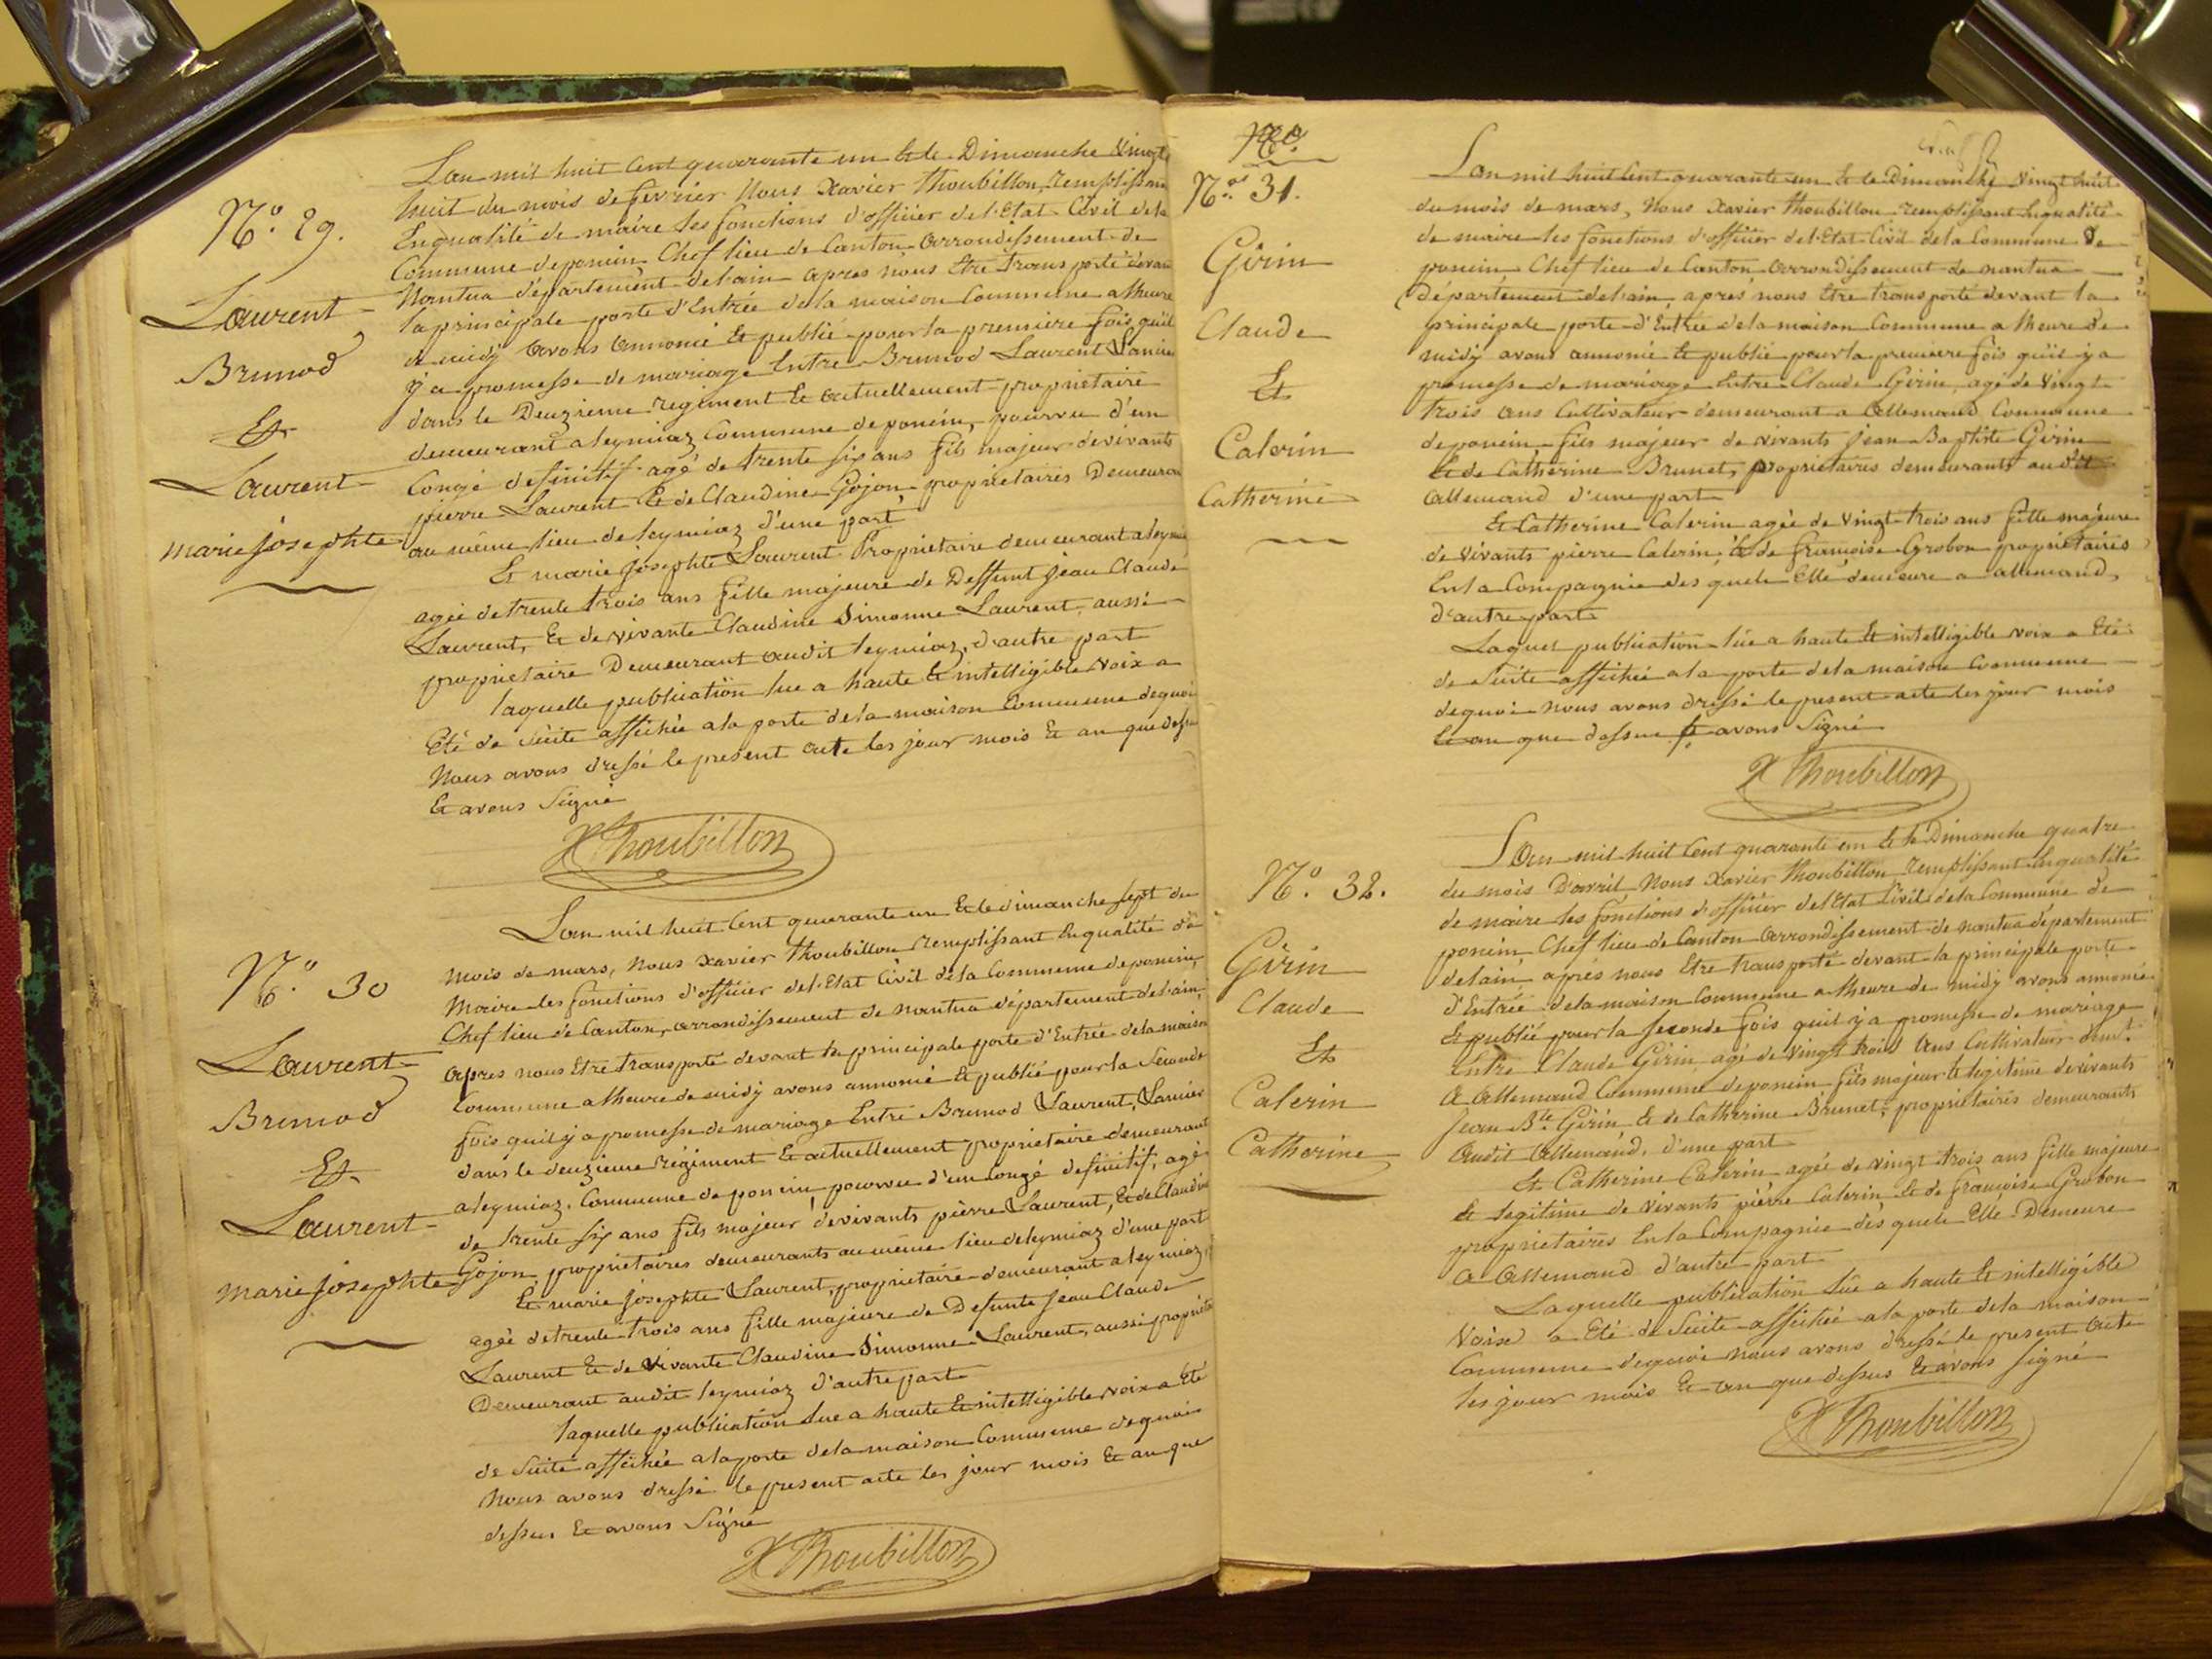 N.º 29.
Laurent
Brunod
Et
Laurent
marie josephte
L'an mil huit Cent quarante un Et le Dimanche Vingt
huit du mois de fevrier Nous Xavier Thoubillon, remplissant
En qualité de maire les fonctions d'officier de l'Etat Civil de la
Commune de poncin Chef lieu de Canton arrondissement de
Nantua département de l'ain apres nous Etre transporté devant
la principale porte d'Entrée de la maison Commune a lheure
de midy avons annoncé Et publié pour la premiere fois qu'il
y a promesse de mariage Entre Brunod Laurent
dans le Deuzieme regiment Et actuellement propriétaire
demeurant a leymiaz Commune de poncin, pourvu d'un
Congé definitif agé de trente six ans fils majeur de vivants
pierre Laurent Et de Claudine Gojon propriétaires Demeurant
au même lieu de leymiaz d'une part
Et marie josephte Laurent Propriétaire demeurant a leymiaz
agée de trente trois ans fille majeure de Deffunt jean Claude
Laurent, Et de vivante Claudine Simonne Laurent, aussi
propriétaire Demeurant audit leymiaz, d'autre part
laquelle publication lue a haute Et intelligible voix a
Eté de suite affichée a la porte de la maison Commune dequoi
Nous avons dressé le present acte les jour mois Et an que dessus
Et avons Signé
X Thoubillon
N.º 30
Laurent
Brunod
Et
Laurent
marie josephte
L'an mil huit Cent quarante un Et le dimanche sept du
mois de mars, Nous Xavier Thoubillon remplissant En qualité de
Maire les fonctions d'officier de l'Etat Civil de la Commune de poncin,
Chef lieu de Canton, arrondissement de Nantua département de l'ain,
apres nous Etre transporté devant la principale porte d'Entrée de la maison
Commune a lheure de midy avons annoncé Et publié pour la Seconde
fois qu'il y a promesse de mariage Entre Brunod Laurent,
dans le deuzieme régiment Et actuellement propriétaire demeurant
a leymiaz, Commune de poncin, pourvu d'un Congé definitif, agé
de trente six ans fils majeur de vivants pierre Laurent, Et de Claudine
Gojon propriétaires demeurants au même lieu de leymiaz d'une part
Et marie josephte Laurent, propriétaire demeurant a leymiaz,
agée de trente trois ans fille majeure de Defunte jean Claude
Laurent Et de Vivante Claudine Simonne Laurent, aussi propriétaire
Demeurant audit leymiaz d'autre part
laquelle publication lue a haute Et intelligible voix a Eté
de suite affichée a la porte de la maison Commune dequoi
Nous avons dressé le present acte les jour mois Et an que
dessus Et avons Signé
X Thoubillon
N.º 31.
Girin
Claude
Et
Calerin
Catherine
L'an mil huit Cent quarante un Et le Dimanche vingt huit
du mois de mars, Nous Xavier Thoubillon remplissant En qualité
de maire les fonctions d'officier de l'Etat Civil de la Commune de
poncin Chef lieu de Canton arrondissement de nantua
département de l'ain, aprés nous Etre transporté devant la
principale porte d'Entrée de la maison Commune a lheure de
midy avons annoncé Et publié pour la premiere fois qu'il y a
promesse de mariage Entre Claude Girin, agé de Vingt
trois ans Cultivateur demeurant a allemand Commune
de poncin fils majeur de vivants jean Baptiste Girin
Et de Catherine Brunet, propriétaires demeurants audit
allemand d'une part
Et Catherine Calerin agée de Vingt trois ans fille majeure
de Vivants pierre Calerin, Et de françoise Grobon propriétaires
En la Compagnie des quels Elle demeure a allemand,
d'autre part
Laquel publication lue a haute Et intelligible voix a Eté
de Suite affichée a la porte de la maison Commune
dequoi Nous avons dressé le present acte les jour mois
Et an que dessus Et avons Signé
X Thoubillon
N.º 32.
Girin
Claude
Et
Calerin
Catherine
L'an mil huit Cent quarante un Et le Dimanche quatre
du mois D'avril Nous Xavier Thoubillon remplissant En qualité
de maire les fonctions d'officier de l'Etat Civil de la Commune de
poncin, Chef lieu de Canton arrondissement de nantua département
de l'ain, aprés nous Etre transporté devant la principale porte
d'Entrée de la maison Commune a lheure de midy avons annoncé
Et publié pour la Seconde fois qu'il y a promesse de mariage
Entre Claude Girin, agé de Vingt trois ans Cultivateur demt.
a allemand Commune de poncin fils majeur Et legitime de vivants
Jean Bte. Girin Et de Catherine Brunet, propriétaires demeurants
audit allemand, d'une part
Et Catherine Calerin agée de vingt trois ans fille majeure
Et legitime de Vivants pièrre Calerin Et de françoise Grobon
propriétaires En la Compagnie des quels Elle Demeure
a allemand d'autre part
Laquelle publication lue a haute Et intelligible
Voix a Eté de Suite affichée a la porte de la maison
Commune dequoi Nous avons dressé le present acte
les jour mois Et an que dessus Et avons signé
X Thoubillon